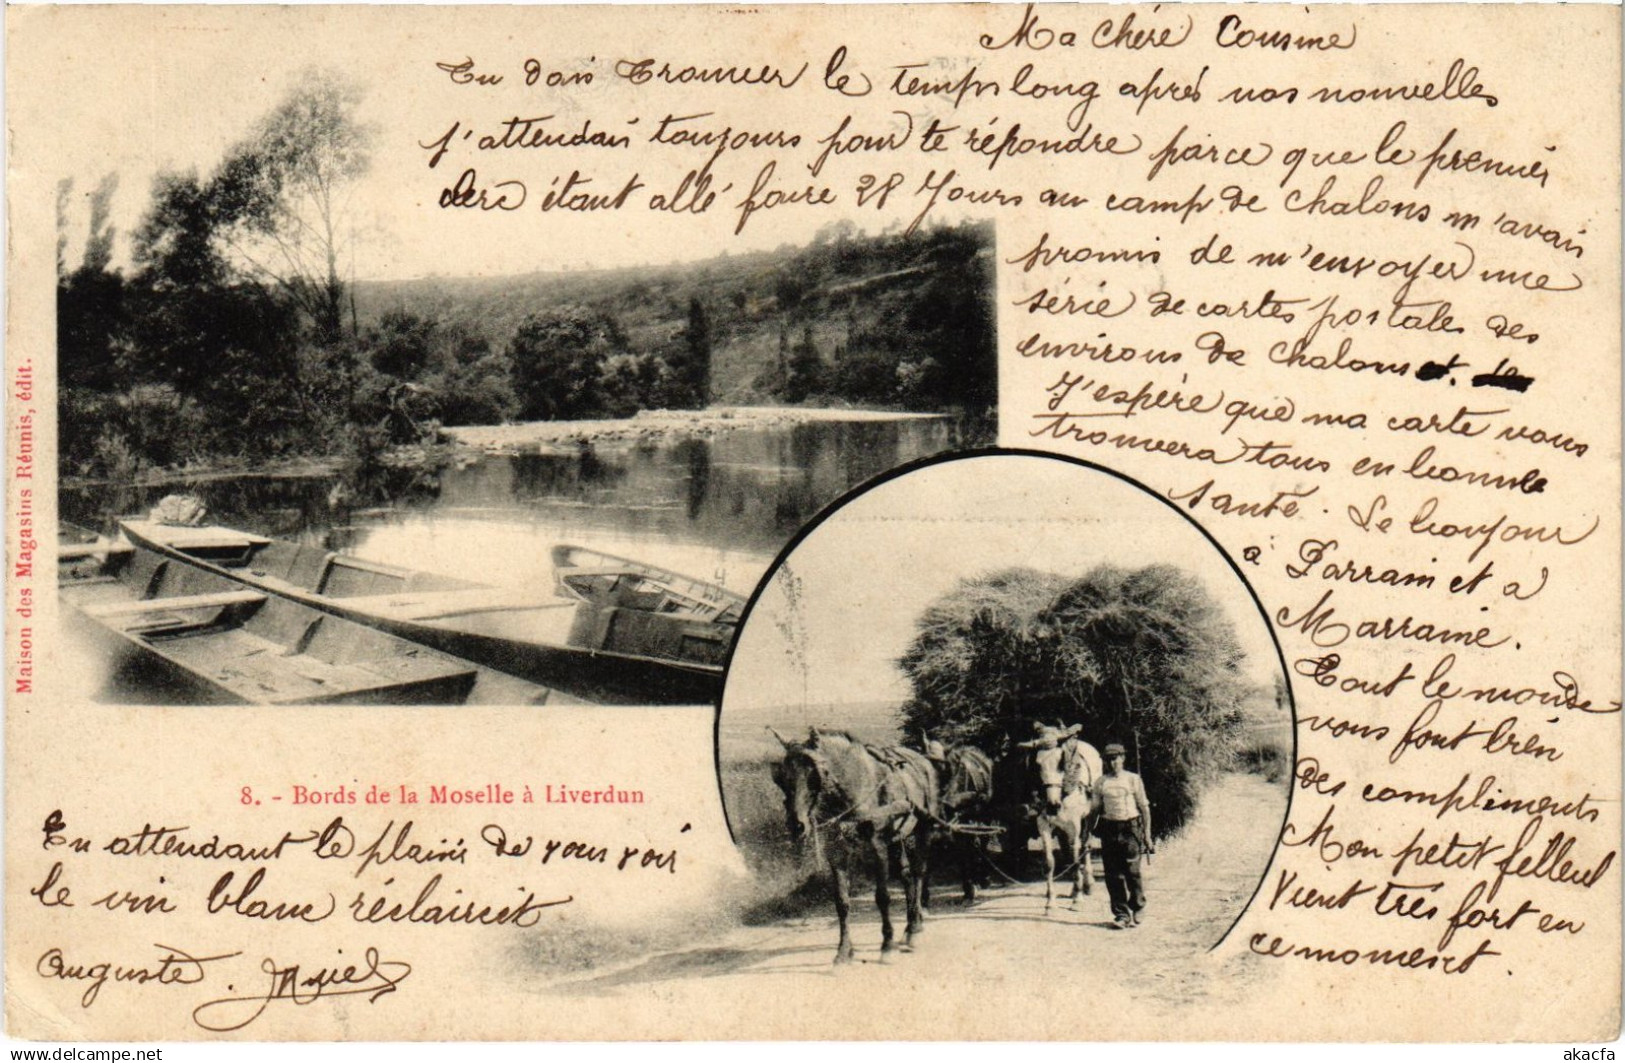 Ma chère Cousine
Tu dois trouver le temps long après nos nouvelles
j'attendais toujours pour te répondre parce que le premier
clerc étant allé faire 28 Jours au camp de Chalons m'avais
promis de m'envoyer une
série de cartes postales des
environs de Chalons
J'espère que ma carte vous
trouvera tous en bonne
santé. Le bonjour
à Parrain et à
Marraine.
Tout le monde
vous font bien
des compliments
Mon petit filleul
vient très fort en
ce moment.
8. - Bords de la Moselle à Liverdun
En attendant le plaisir de vous voir
le vin blanc réclaircit
Auguste.
Maison des Magasins Réunis, édit.
www.delcampe.net
akacfa